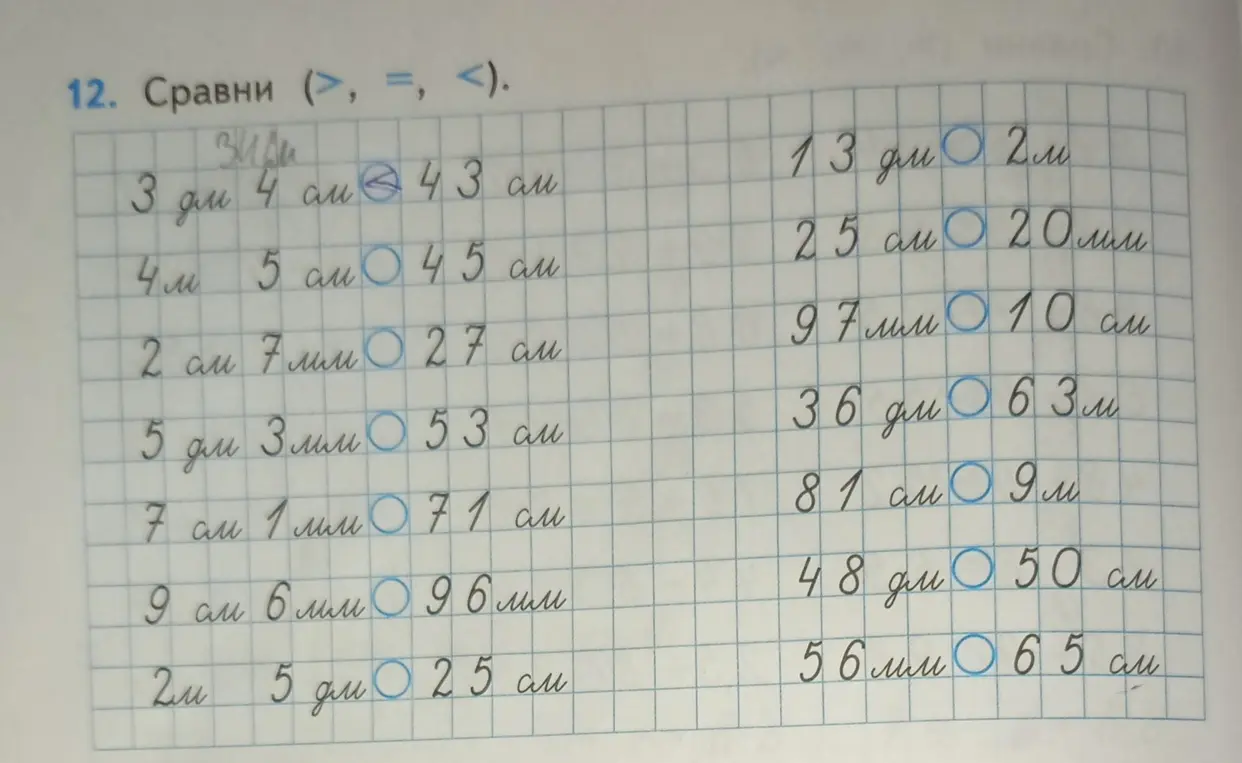 12. Сравни (>, =, <).
3 дм 4 см < 43 см
4м 5 см 45 см
2 см 7мм 27 см
5 дм 3мм 53 см
7 см 1мм 71 см
9 см 6мм 96мм
2м 5 дм 25 см
13 дм 2м
25 см 20мм
97мм 10 см
36 дм 63м
81 см 9м
48 дм 50 см
56мм 65 см